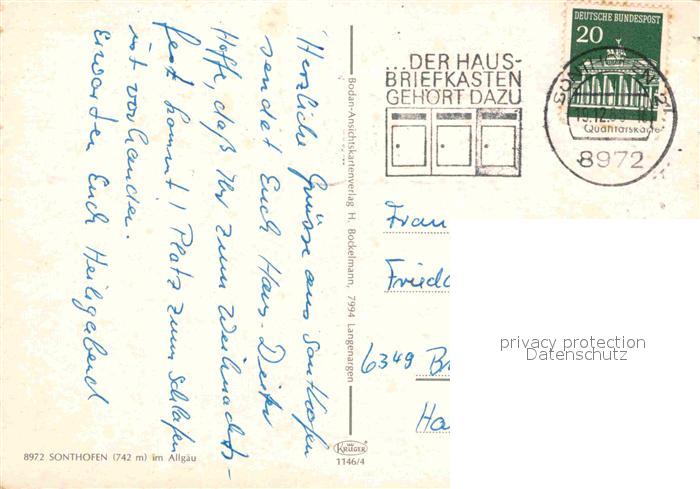 Herzliche Grüsse aus Sonthofen
sendet Euch Hans-Dieter
Hoffe, daß Ihr zum Weihnachts-
fest kommt! Platz zum Schlafen
ist vorhanden.
Erwarten Euch Heiligabend
8972 SONTHOFEN (742 m) im Allgäu
Bodan-Ansichtskartenverlag H. Bockelmann, 7994 Langenargen
KRÜGER
1146/4
...DER HAUS-
BRIEFKASTEN
GEHÖRT DAZU
DEUTSCHE BUNDESPOST
20
SONTHOFEN
8972
Frau
Fried
6349
privacy protection
Datenschutz